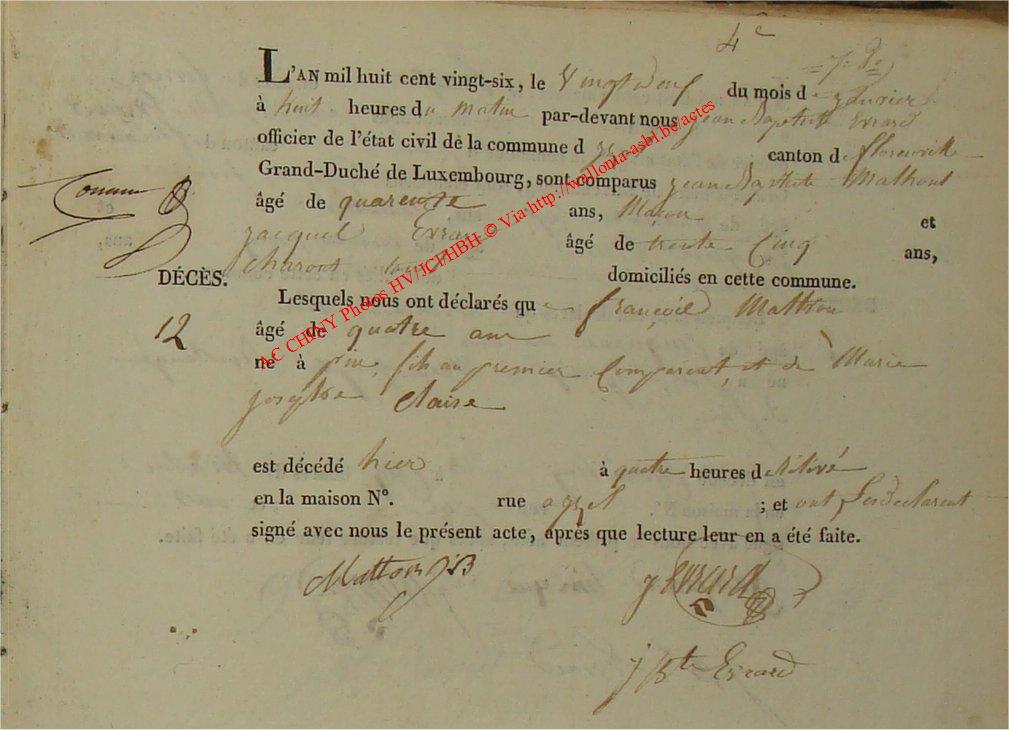 4e
L'AN mil huit cent vingt-six, le Vingt deux du mois de janvier
à huit heures du matin par-devant nous jean Baptiste Evrard
officier de l'état civil de la commune d canton de florenville
Grand-Duché de Luxembourg, sont comparus jean Baptiste Mathont
âgé de quarente ans, Macon et
jacquel Evrard âgé de trente Cinq ans,
domiciliés en cette commune.
Lesquels nous ont déclarés que françoiel Matthon
âgé de quatre ans
né à fils au premier Comparent, et de Marie
josephe Claise
est décédé hier à quatre heures de Rélévé
en la maison N°. rue a ; et ont Les Declarent
signé avec nous le présent acte, après que lecture leur en a été faite.
DÉCÈS.
12
Matton JB
j Evrard
j Bte Evrard
AC CHINY Photos HV/JCI/HBH © Via http://wallonia-asbl.be/actes